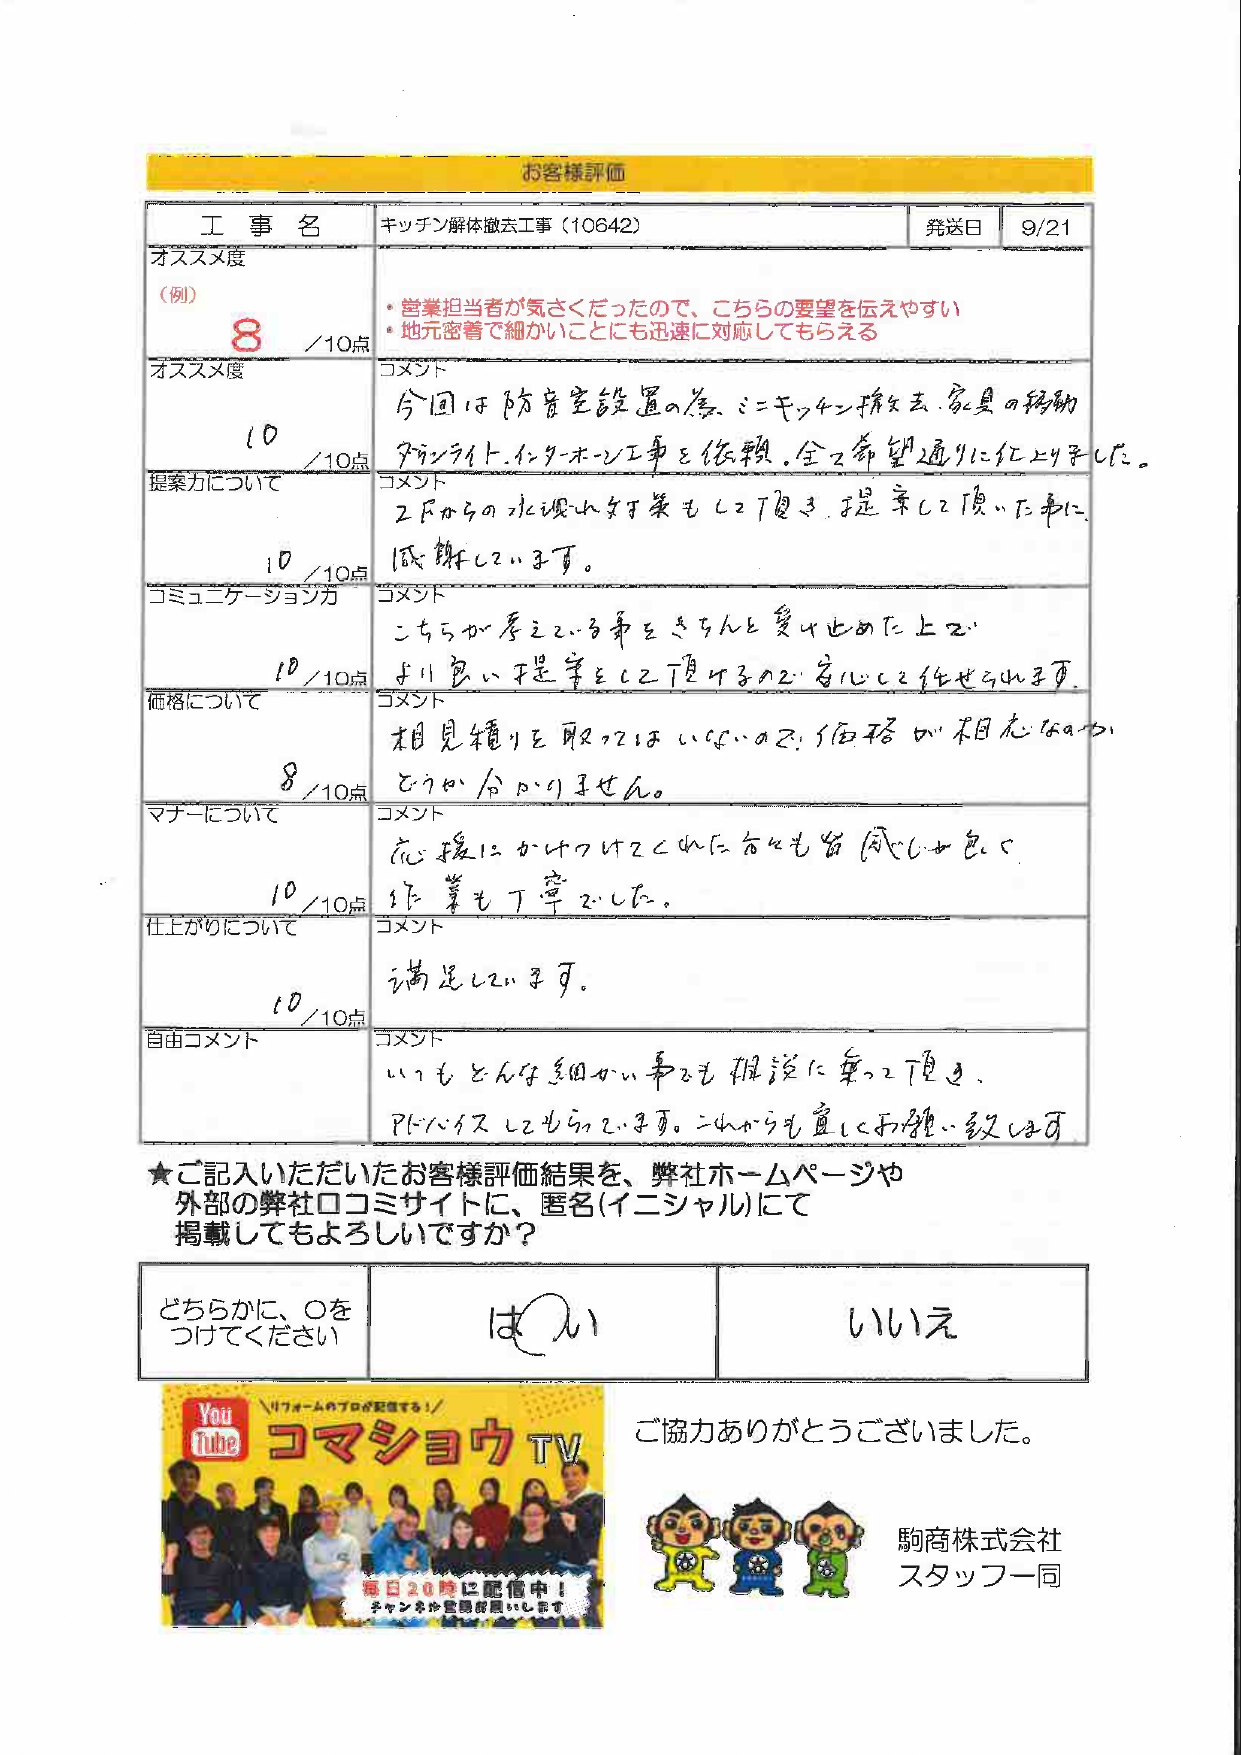 お客様評価
工事名 キッチン解体撤去工事（10642） 発送日 9/21
オススメ度
（例）
8 /10点
・営業担当者が気さくだったので、こちらの要望を伝えやすい
・地元密着で細かいことにも迅速に対応してもらえる
オススメ度
10 /10点
コメント
今回は防音室設置の為、ミニキッチン撤去、家具の移動
ダウンライト、インターホーン工事を依頼。全て希望通りに仕上りました。
提案力について
10 /10点
コメント
2Fからの水漏れ対策もして頂き、提案して頂いた事に
感謝しています。
コミュニケーション力
10 /10点
コメント
こちらが考えている事をきちんと受け止めた上で
より良い提案をして頂けるので安心して任せられます。
価格について
8 /10点
コメント
相見積りを取ってはいないので、価格が相応なのか
どうか分かりません。
マナーについて
10 /10点
コメント
応援にかけつけてくれた方々も皆感じが良く
作業も丁寧でした。
仕上がりについて
10 /10点
コメント
満足しています。
自由コメント
コメント
いつもどんな細かい事でも相談に乗って頂き、
アドバイスしてもらっています。これからも宜しくお願い致します
★ご記入いただいたお客様評価結果を、弊社ホームページや
外部の弊社口コミサイトに、匿名(イニシャル)にて
掲載してもよろしいですか？
どちらかに、○を
つけてください
はい
いいえ
You
Tube
＼リフォームのプロが配信する！／
コマショウTV
毎日20時に配信中！
チャンネル登録お願いします
ご協力ありがとうございました。
駒商株式会社
スタッフ一同